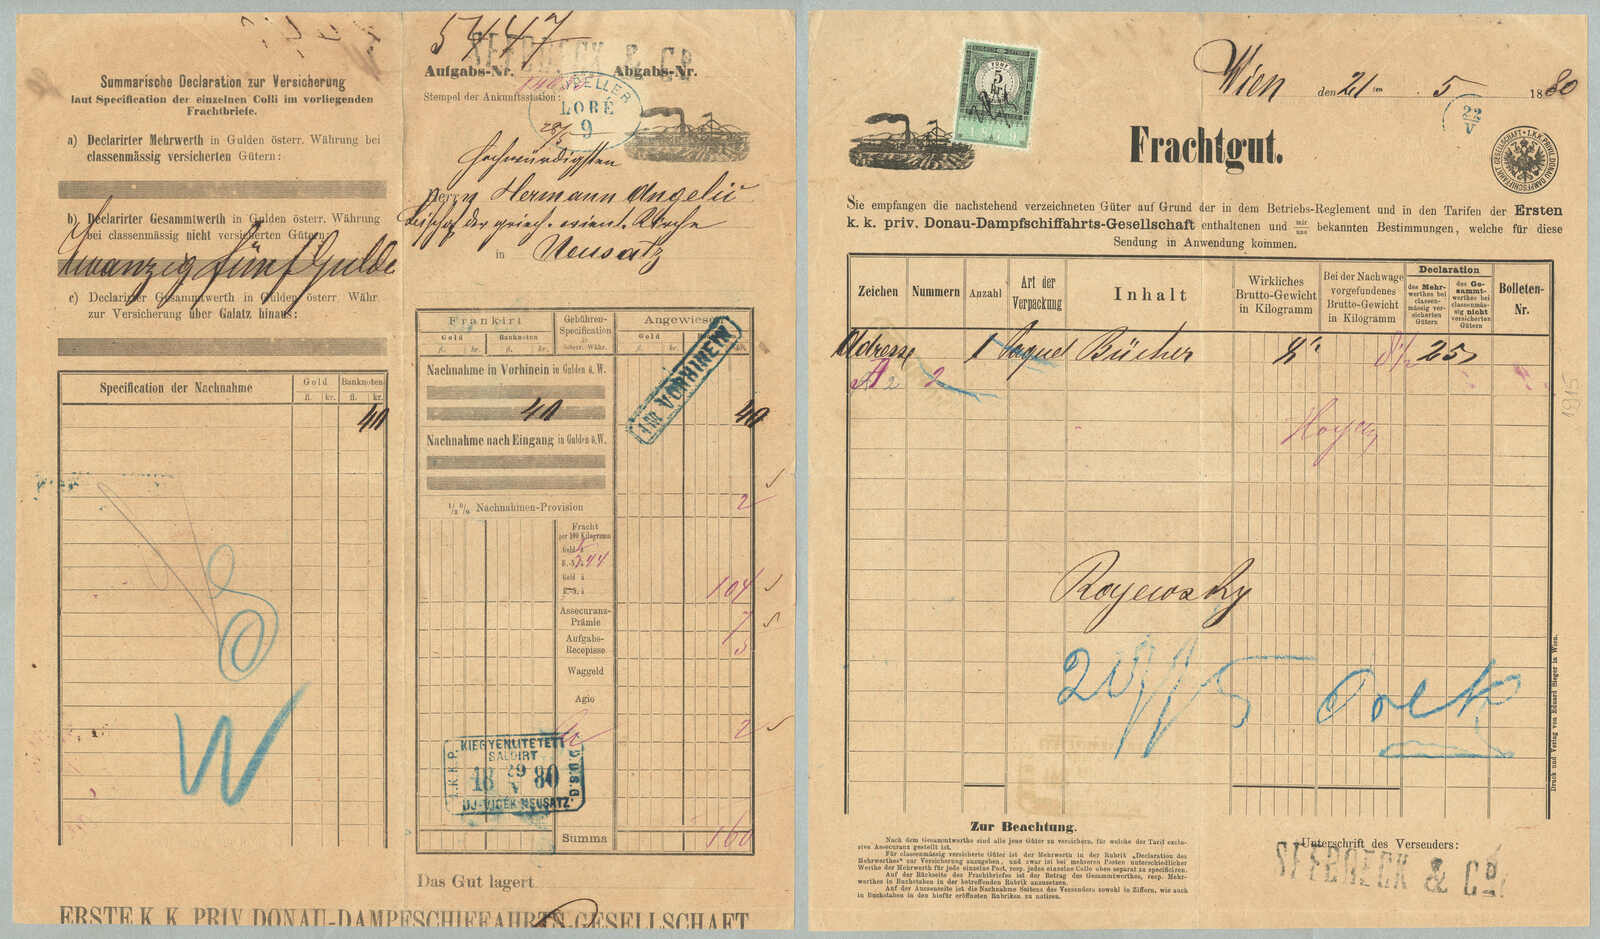 Summarische Declaration zur Versicherung
laut Specification der einzelnen Colli im vorliegenden
Frachtbriefe.
a) Declarirter Mehrwerth in Gulden österr. Währung bei
classenmässig versicherten Gütern:
b) Declarirter Gesammtwerth in Gulden österr. Währung
bei classenmässig nicht versicherten Gütern:
zwanzig fünf Gulde
c) Declarirter Gesammtwerth in Gulden österr. Währ.
zur Versicherung über Galatz hinaus:
Specification der Nachnahme
Gold
Banknoten
fl. kr. fl. kr.
40
SEEBOECK & Co
Aufgabs-Nr.
Abgabs-Nr.
Stempel der Ankunftsstation:
ELLER
LORÉ
9
28/5
Hochwürdigsten
Herrn Hermann Angelić
Bischof der griech. orient. Kirche
in Neusatz
Frankirt
Gebühren-
Specification
in
österr. Währ.
Angewiesen
Gold
Banknoten
fl. kr. fl. kr.
Gold
fl. kr.
kr.
IM VORHINEIN
Nachnahme in Vorhinein in Gulden ö.W.
40
40
Nachnahme nach Eingang in Gulden ö.W.
1/2 % Nachnahmen-Provision
2
Fracht
per 100 Kilogramm
Gold à
B.-N. à
3.44
Gold à
B.-N. à
104
Assecuranz-
Prämie
7
Aufgabs-
Recepisse
5
Waggeld
Agio
2
KIEGYENLITETETT
SALDIRT
18 29 V 80
UJ-VIDÉK NEUSATZ.
D.D.S.G.
Summa
160
Das Gut lagert
ERSTE K. K. PRIV. DONAU-DAMPFSCHIFFAHRTS-GESELLSCHAFT
W
FÜNF
5
kr.
Wien den 21 im 5 1880
22
V
Frachtgut.
1. K.K. PRIVIL. DONAU DAMPFSCHIFFAHRT GESELLSCHAFT
Sie empfangen die nachstehend verzeichneten Güter auf Grund der in dem Betriebs-Reglement und in den Tarifen der Ersten
k. k. priv. Donau-Dampfschiffahrts-Gesellschaft enthaltenen und mir uns bekannten Bestimmungen, welche für diese
Sendung in Anwendung kommen.
Zeichen
Nummern
Anzahl
Art der
Verpackung
Inhalt
Wirkliches
Brutto-Gewicht
in Kilogramm
Bei der Nachwage
vorgefundenes
Brutto-Gewicht
in Kilogramm
Declaration
des Mehr-
werthes bei
classen-
mässig ver-
sicherten
Gütern
des Ge-
sammt-
werthes bei
classenmäs-
sig nicht
versicherten
Gütern
Bolleten-
Nr.
Adresse 1 Paquet Bücher
25
1915
20/5
Zur Beachtung.
Nach dem Gesammtwerthe sind alle jene Güter zu versichern, für welche der Tarif exclu-
sive Assecuranz gestellt ist.
Für classenmässig versicherte Güter ist der Mehrwerth in der Rubrik „Declaration des
Mehrwerthes" zur Versicherung anzugeben, und zwar ist bei mehreren Posten unterschiedlicher
Werthe der Mehrwerth für jede einzelne Post, resp. jedes einzelne Collo oben separat zu specificiren.
Auf der Rückseite des Frachtbriefes ist der Betrag des Gesammtwerthes, resp. Mehr-
werthes in Buchstaben in der betreffenden Rubrik anzusetzen.
Auf der Aussenseite ist die Nachnahme Seitens des Versenders sowohl in Ziffern, wie auch
in Buchstaben in den hiefür eröffneten Rubriken zu notiren.
Unterschrift des Versenders:
SEEBOECK & Co
Druck und Verlag von Eduard Sieger in Wien.